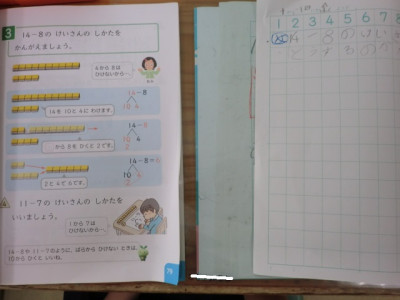 3
14-8の けいさんの しかたを
かんがえましょう。
4から 8は
ひけないから…
14-8
10 4
14を 10と 4に わけます。
14-8
10 4
2
から 8を ひくと 2です。
14-8=6
10 4
2
2と 4で 6です。
11-7の けいさんの しかたを
いいましょう。
1から 7は
ひけないから…
14-8や 11-7のように、ばらから ひけない ときは、
10から ひくと いいね。
79
1 2 3 4 5 6 7 8
14-8のけい